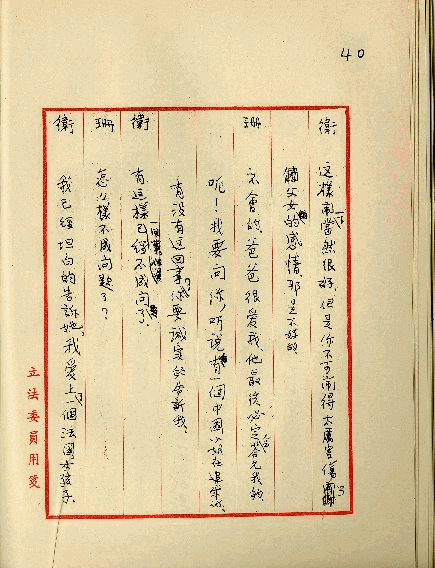 40
衛 這樣鬧一下當然很好，但是你不可鬧得太厲害傷了
父女的感情，那是不好的。
珊 不會的，爸爸很愛我，他最後必定會答允我的，
呃！我要問你，听說有一個中國小姐在追求你，
有没有這回事？你要誠實的告訴我。
衛 有這樣一回事但已經不成問題了。
珊 怎么樣不成問題了？
衛 我已經坦白的告訴她，我愛上了一個法國女孩子，
立法委員用箋